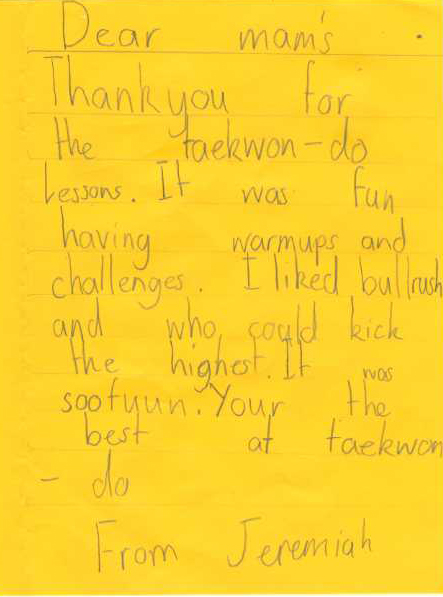 Dear mam's
Thank you for
the taekwon-do
Lessons. It was fun
having warmups and
challenges. I liked bullrush
and who could kick
the highest. It was
sootuun. Your the
best at taekwon
- do
From Jeremiah